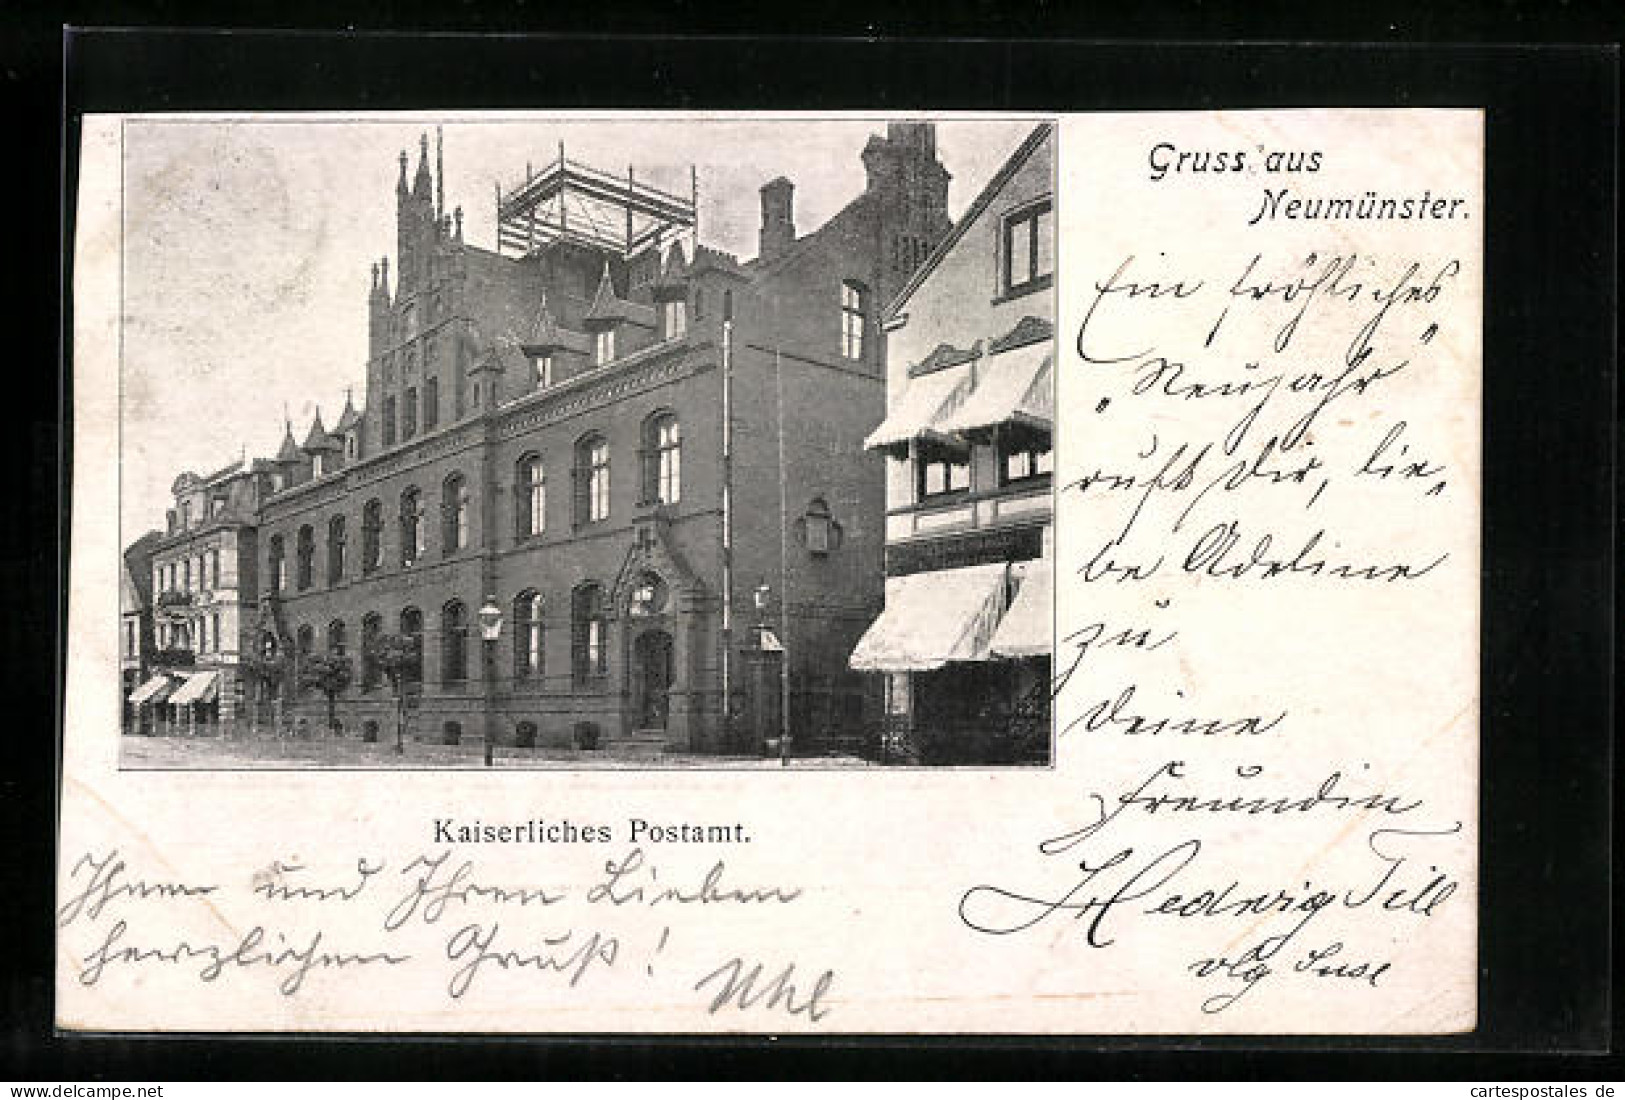 Gruss aus
Neumünster.
Ein fröhliches
„Neujahr"
ruft Dir, lie„
be Adeline
zu
Deine
Freundin
Hedwig Till
Kaiserliches Postamt.
Ihnen und Ihren Lieben
herzlichen Gruß!
cartespostales de